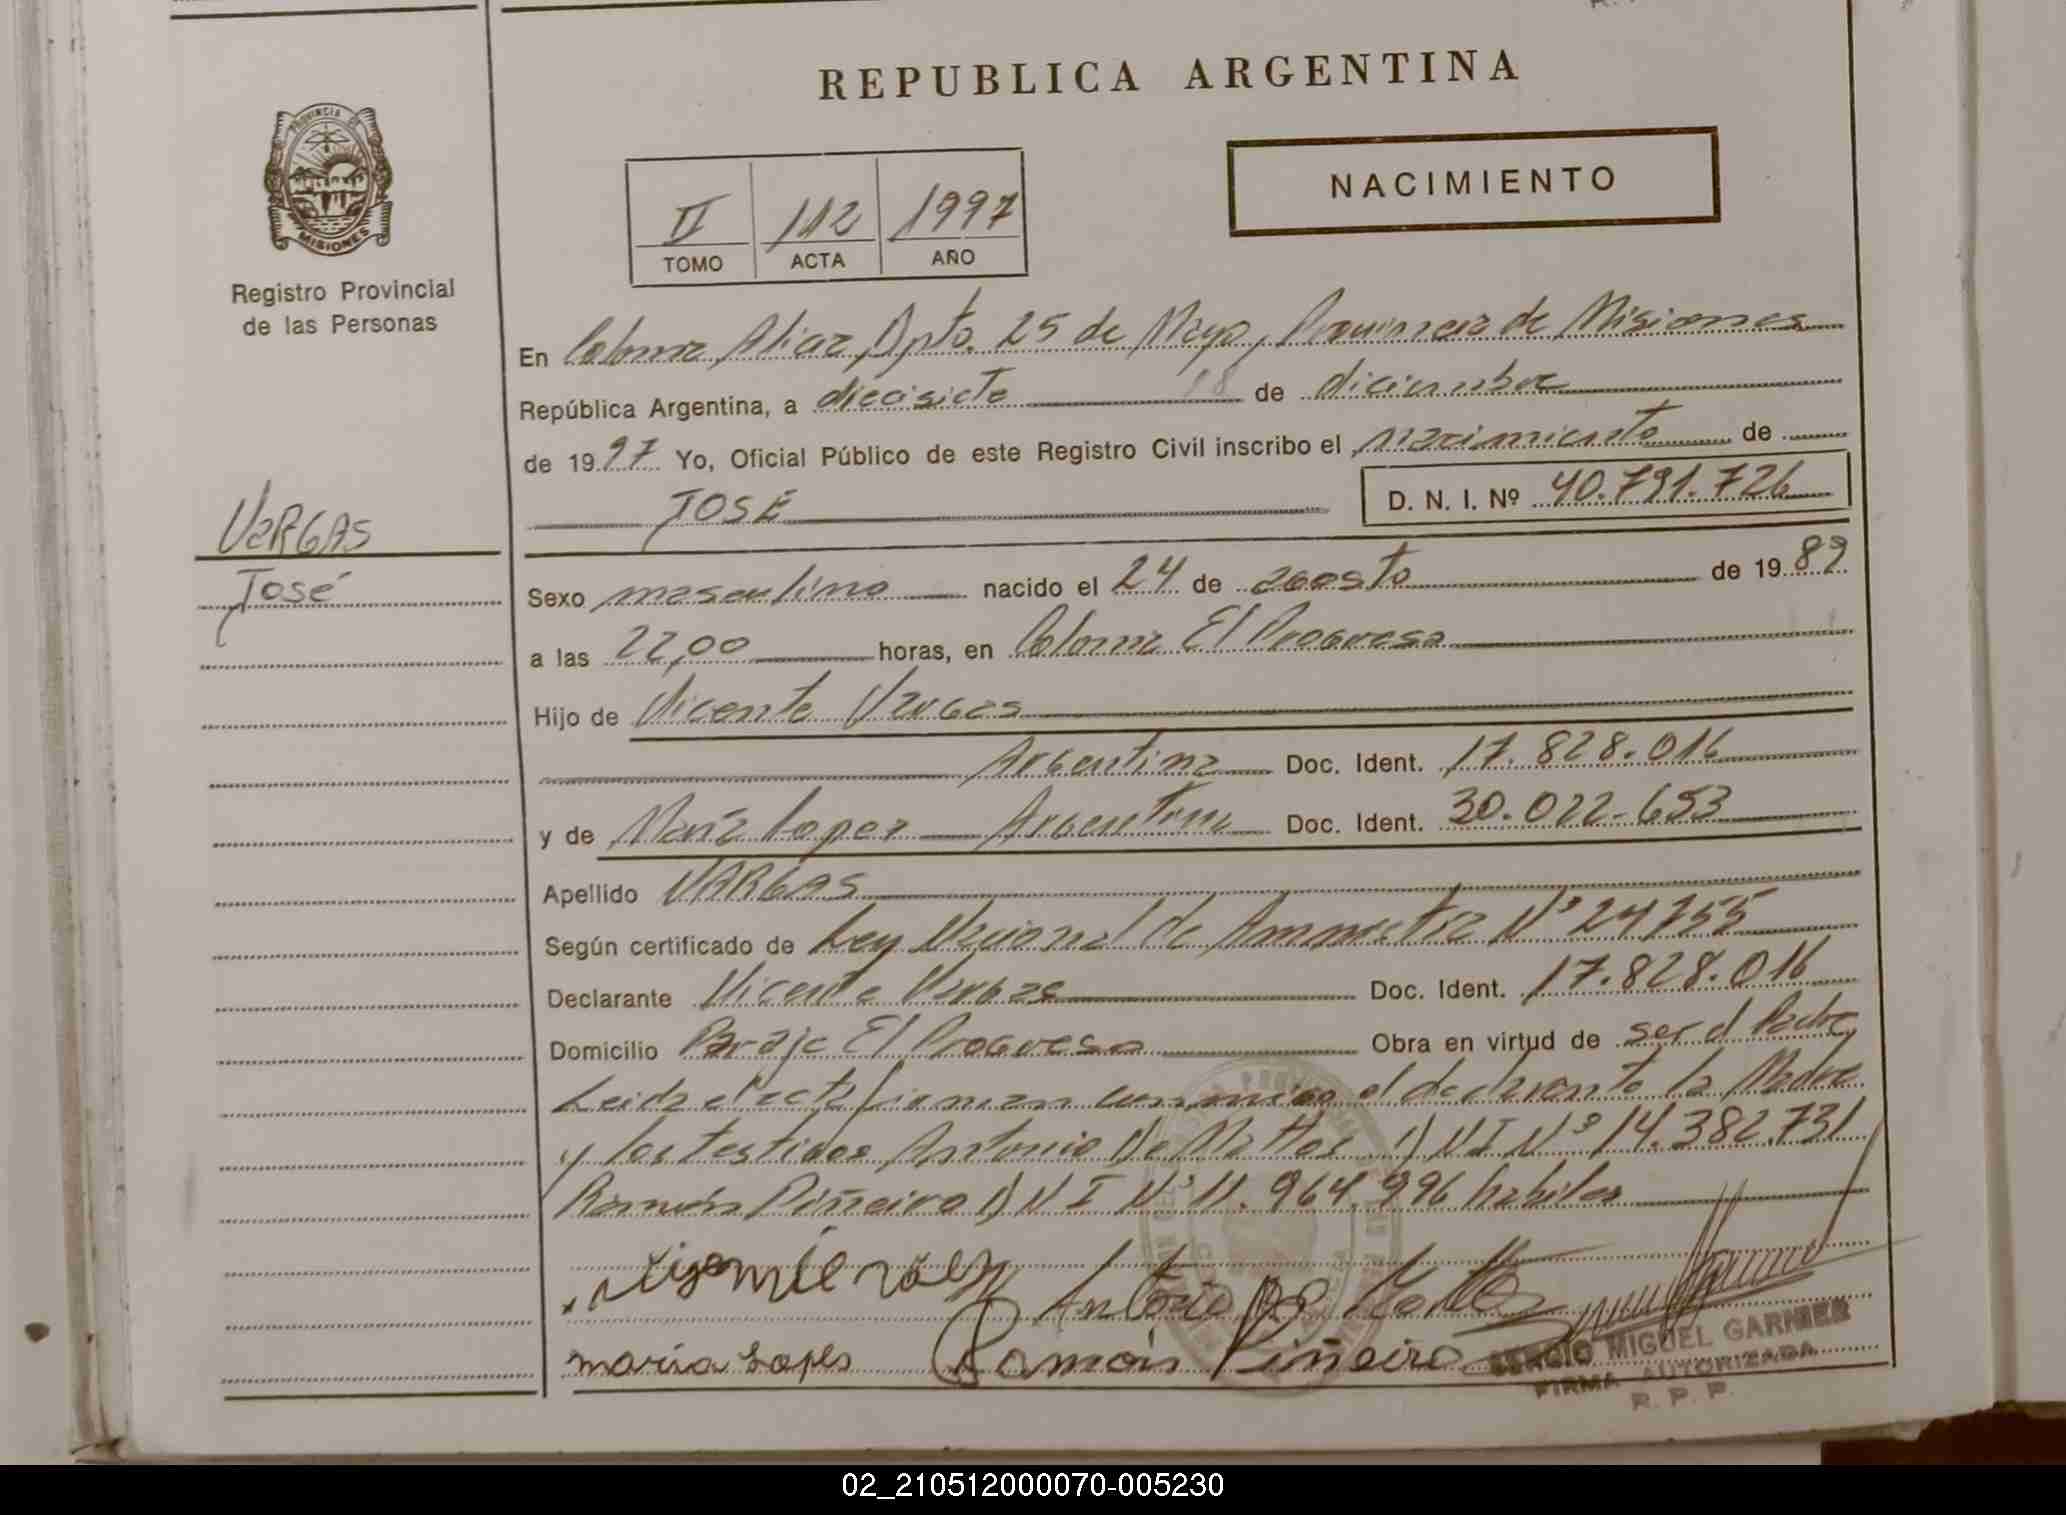 REPUBLICA ARGENTINA
PROVINCIA DE
MISIONES
Registro Provincial
de las Personas
II 112 1997
TOMO ACTA AÑO
NACIMIENTO
En Colonia Alicia, Dpto. 25 de Mayo, Provincia de Misiones
República Argentina, a diecisiete 18 de diciembre
de 1997 Yo, Oficial Público de este Registro Civil inscribo el nacimiento de
JOSÉ D. N. I. Nº 40.791.726
VARGAS
José
Sexo masculino nacido el 24 de agosto de 1989
a las 22,00 horas, en Colonia El Progreso
Hijo de Vicente Vargas
Argentina Doc. Ident. 17.828.016
y de María Lopez Argentina Doc. Ident. 30.022.653
Apellido VARGAS
Según certificado de Ley Nacional de Amnistía Nº 24755
Declarante Vicente Vargas Doc. Ident. 17.828.016
Domicilio Paraje El Progreso Obra en virtud de ser el Padre
Leida el acta firman conmigo el declarante la Madre
y los testigos Antonio De Mattos D N I Nº 14.382.731
Ramón Piñeiro D N I Nº 11.964.996 habiles
Antonio De
maria Lopes Ramón Piñeiro
SERGIO MIGUEL GARNIER
FIRMA AUTORIZADA
R. P. P.
02_210512000070-005230